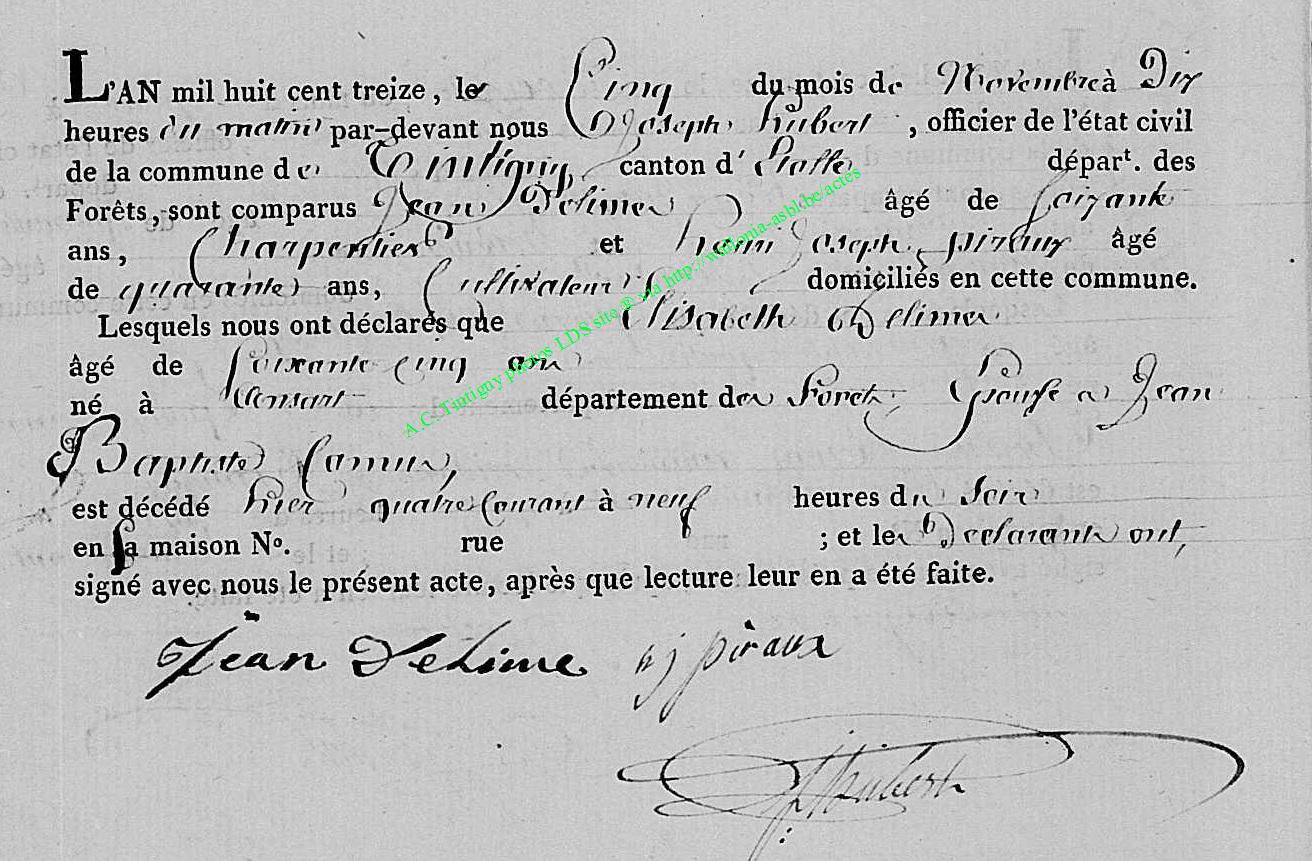 L'AN mil huit cent treize, le Cinq du mois de Novembre à Dix
heures du matin par-devant nous Joseph hubert, officier de l'état civil
de la commune de Tintigny canton d'Etalle départ. des
Forêts, sont comparus Jean Delimee âgé de soixante
ans, Charpentier et henri Joseph pireaux âgé
de quarante ans, Cultivateur domiciliés en cette commune.
Lesquels nous ont déclarés que Elisabeth Delimee
âgé de Soixante cinq ans
né à Ansart département des Foret, Epouse a Jean
Baptiste Camus,
est décédé hier quatre Courant à neuf heures du Soir
en sa maison No. rue ; et les Declarants ont,
signé avec nous le présent acte, après que lecture leur en a été faite.
Jean Delime hj piraux
Hubert
A.C. Tintigny photos LDS site ® via http://wallonia-asbl.be/actes